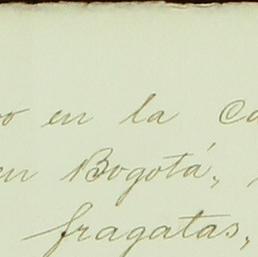 en la
en Bogotá,
fragatas,